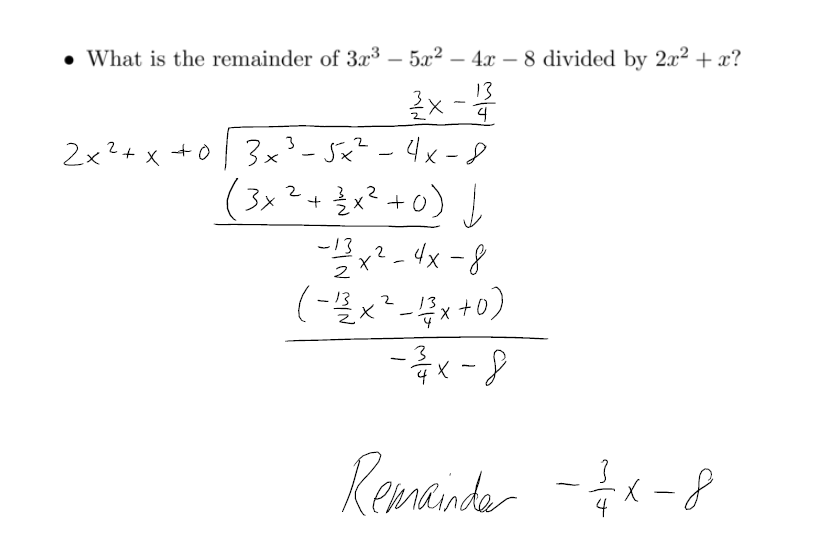 • What is the remainder of 3x³ − 5x² − 4x − 8 divided by 2x² + x?
3/2 x - 13/4
2x² + x + 0 | 3x³ - 5x² - 4x - 8
(3x² + 3/2 x² + 0) ↓
-13/2 x² - 4x - 8
(-13/2 x² - 13/4 x + 0)
-3/4 x - 8
Remainder -3/4 x - 8